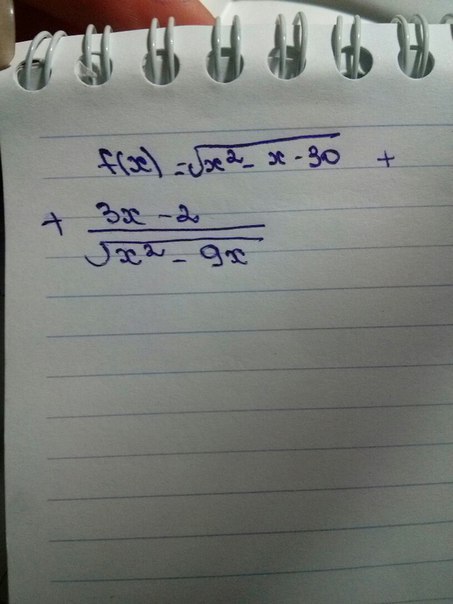 f(x) = √x² - x - 30 +
+ 3x - 2
√x² - 9x